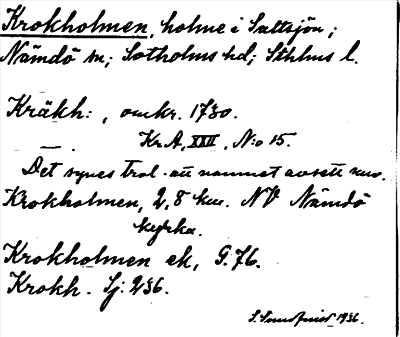 Krokholmen, holme i Saltsjön;
Nämdö sn; Sotholms hd; Sthlms l.
Kråkh:, omkr. 1730.
— . Kr A, XXII, N:o 15.
Det synes trol. att namnet avsett nuv.
Krokholmen, 2,8 km. NV Nämdö
kyrka.
Krokholmen ek, G. 76.
Krokh. Sj: 236.
S. Sundquist 1936.